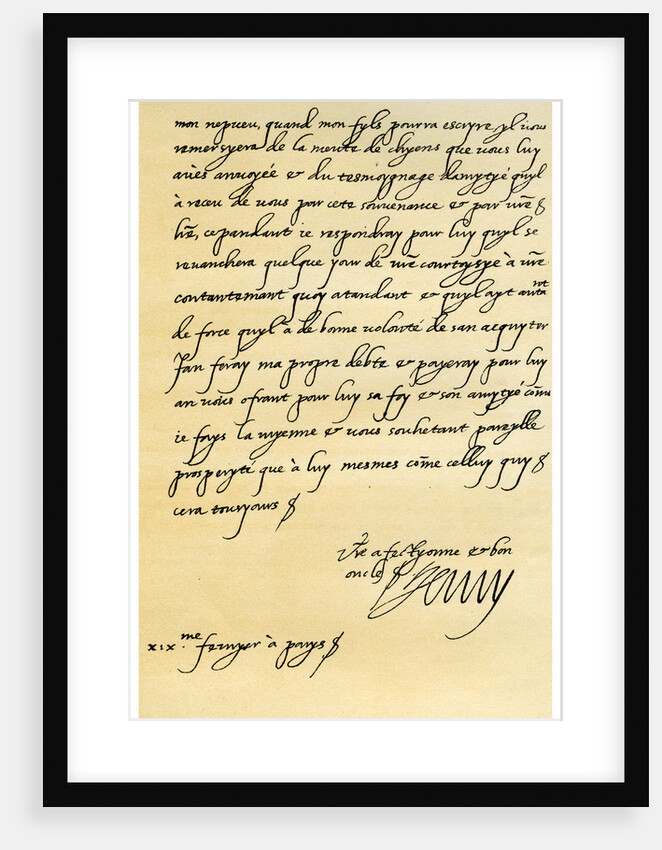 mon nepueu, quand mon fyls pourra escryre yl vous
remersyera de la meute de chyens que vous luy
aviés anuoyée & du tesmoygnage damytyé quyl
à receu de vous par cete souvenance & par vr̄e
lr̄e, cepandant ie respondray pour luy quyl se
revanchera quelque your de vr̄e courtoysye à vr̄e
contantemant quoy atandant & quyl ayt autant
de force quyl à de bonne volonté de san acquyter
Jan feray ma propre debte & payeray pour luy
an vous ofrant pour luy sa foy & son amytyé com̄e
ie fays la myenne & vous souhetant pareylle
prosperyté que à luy mesmes com̄e celluy quy
cera touryours
Vr̄e afectyonne & bon
oncle Henry
xix.me feuryer à parys